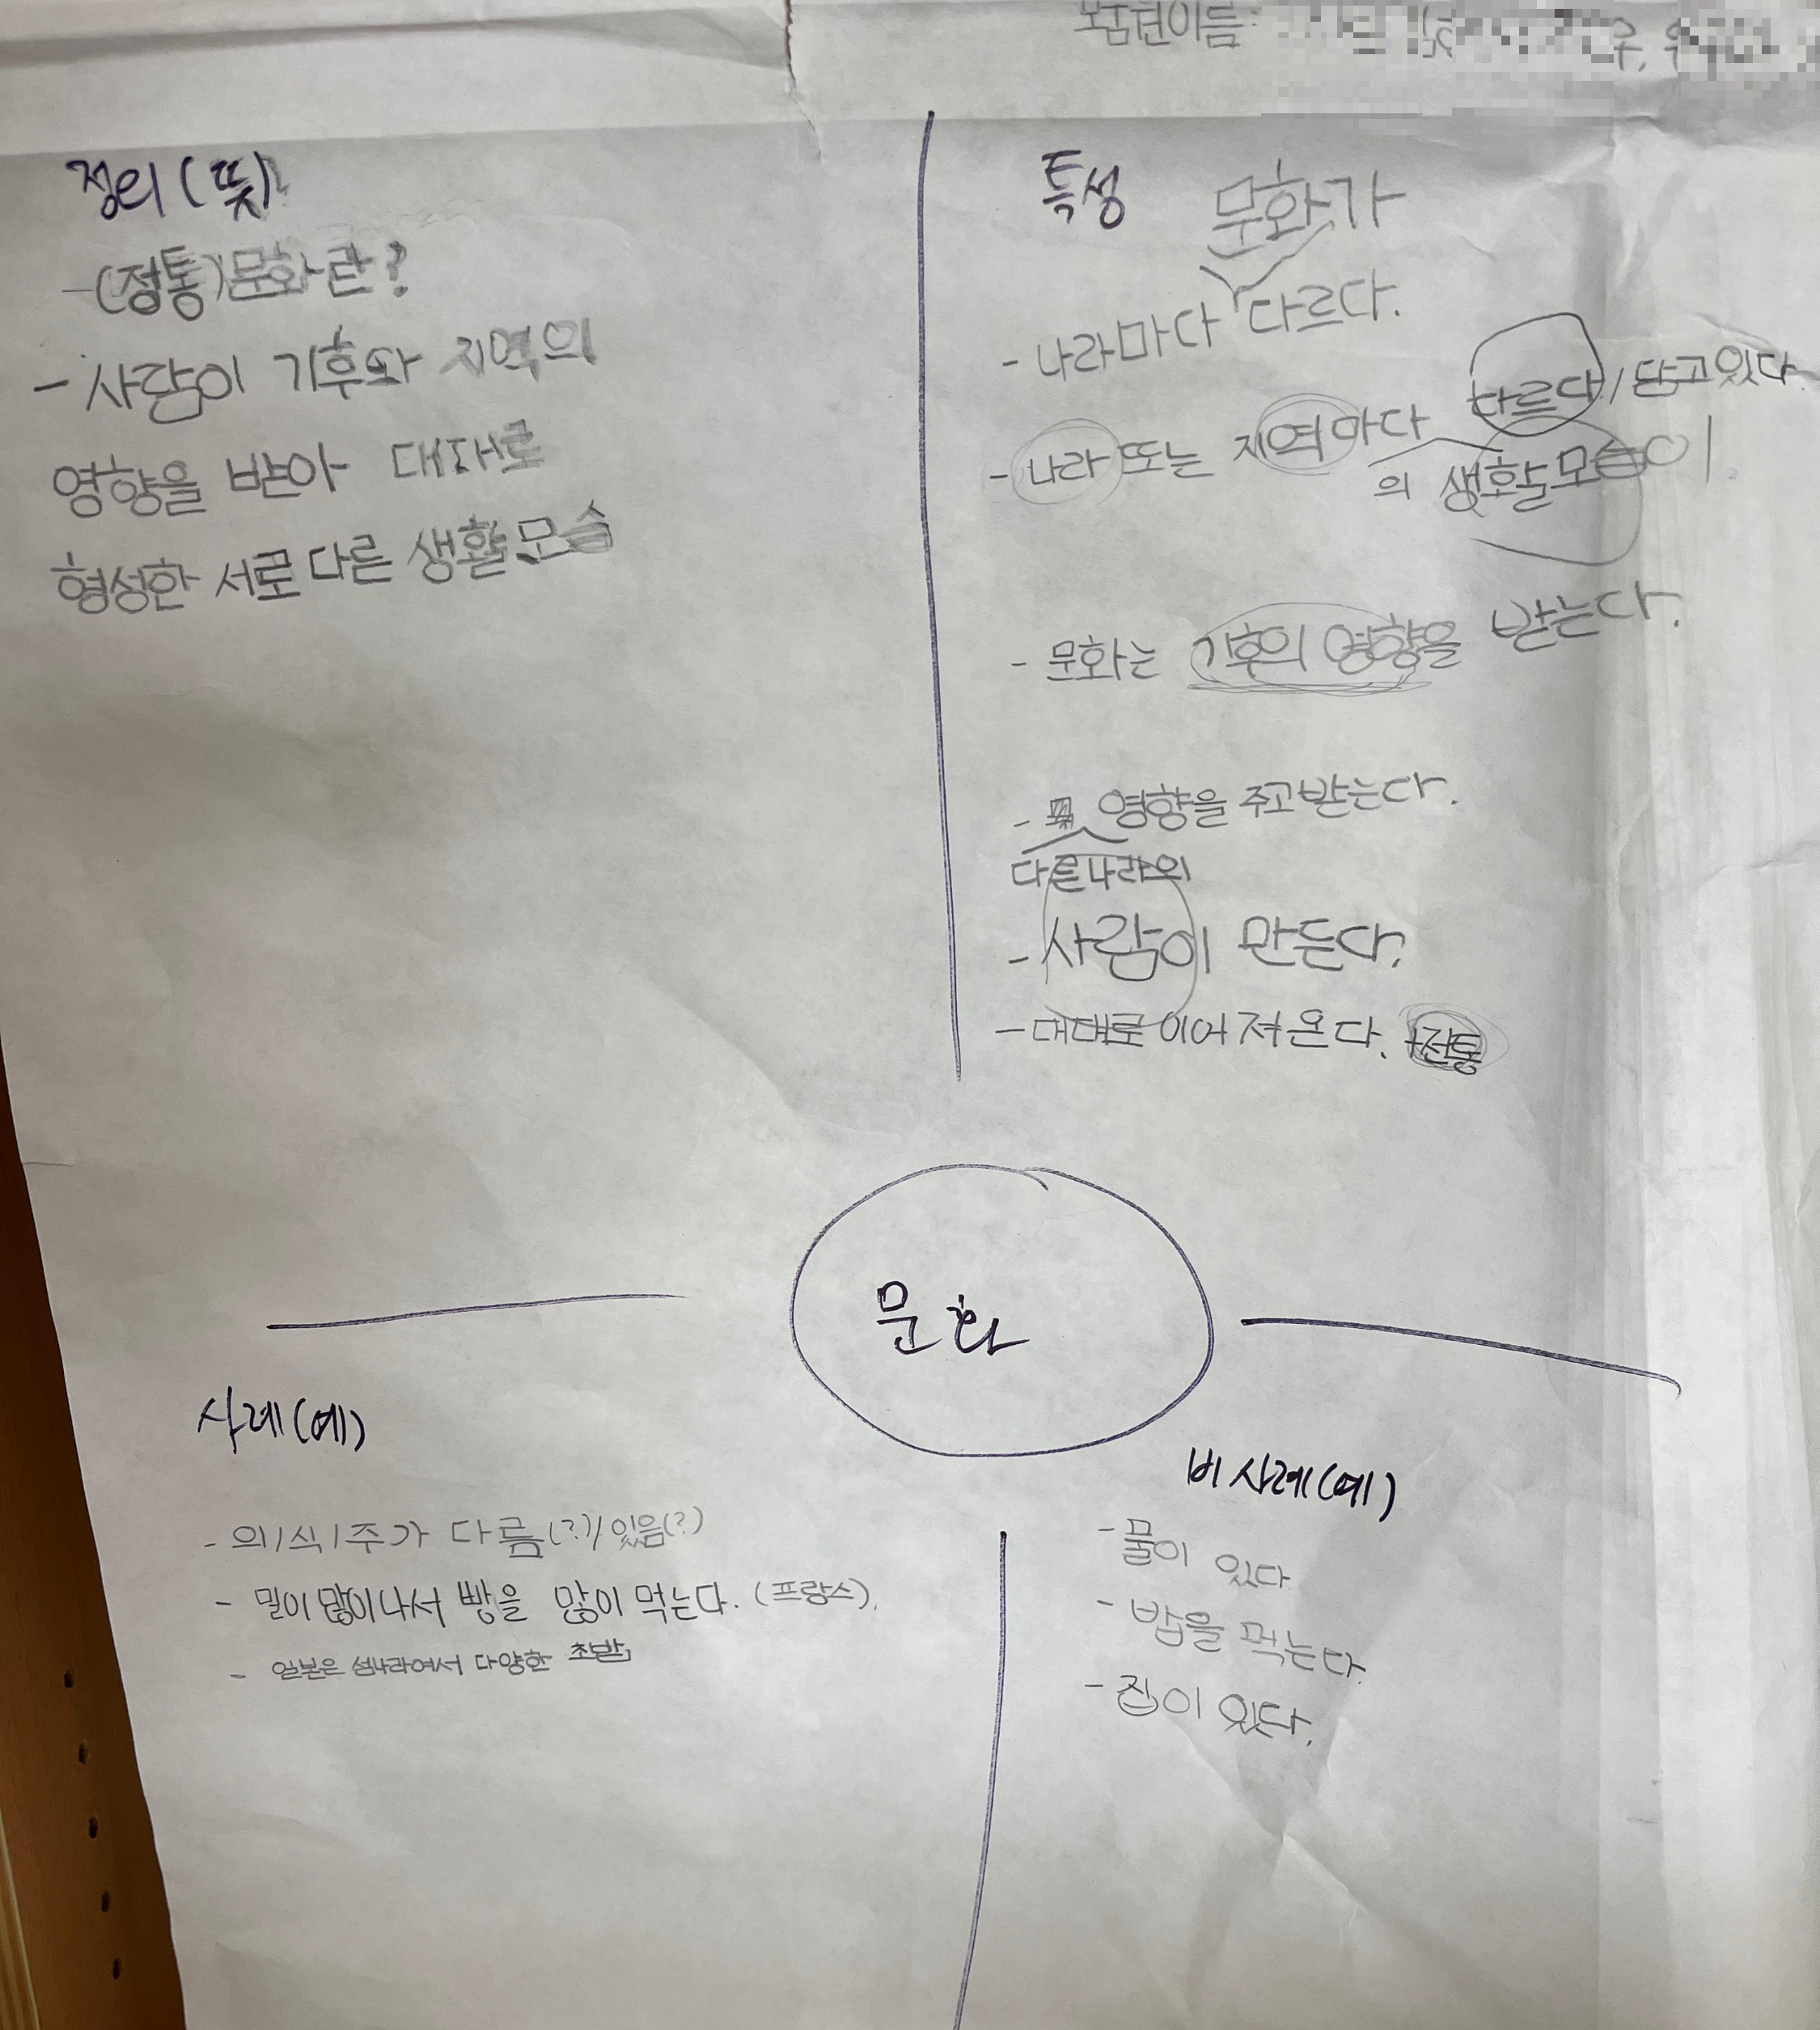 모둠원이름:
정의(뜻)
-(정통)문화란?
- 사람이 기후와 지역의
영향을 받아 대대로
형성한 서로 다른 생활모습
특성
문화가
- 나라마다 다르다.
- 나라 또는 지역마다 다르다/담고있다.
의 생활모습이
- 문화는 기후의 영향을 받는다.
- 영향을 주고받는다.
다른나라의
- 사람이 만든다.
- 대대로 이어져온다. 전통
문화
사례(예)
- 의/식/주가 다름(?)/있음(?)
- 밀이 많이나서 빵을 많이 먹는다. (프랑스).
- 일본은 섬나라여서 다양한 초밥
비사례(예)
- 물이 있다
- 밥을 먹는다
- 집이 있다.